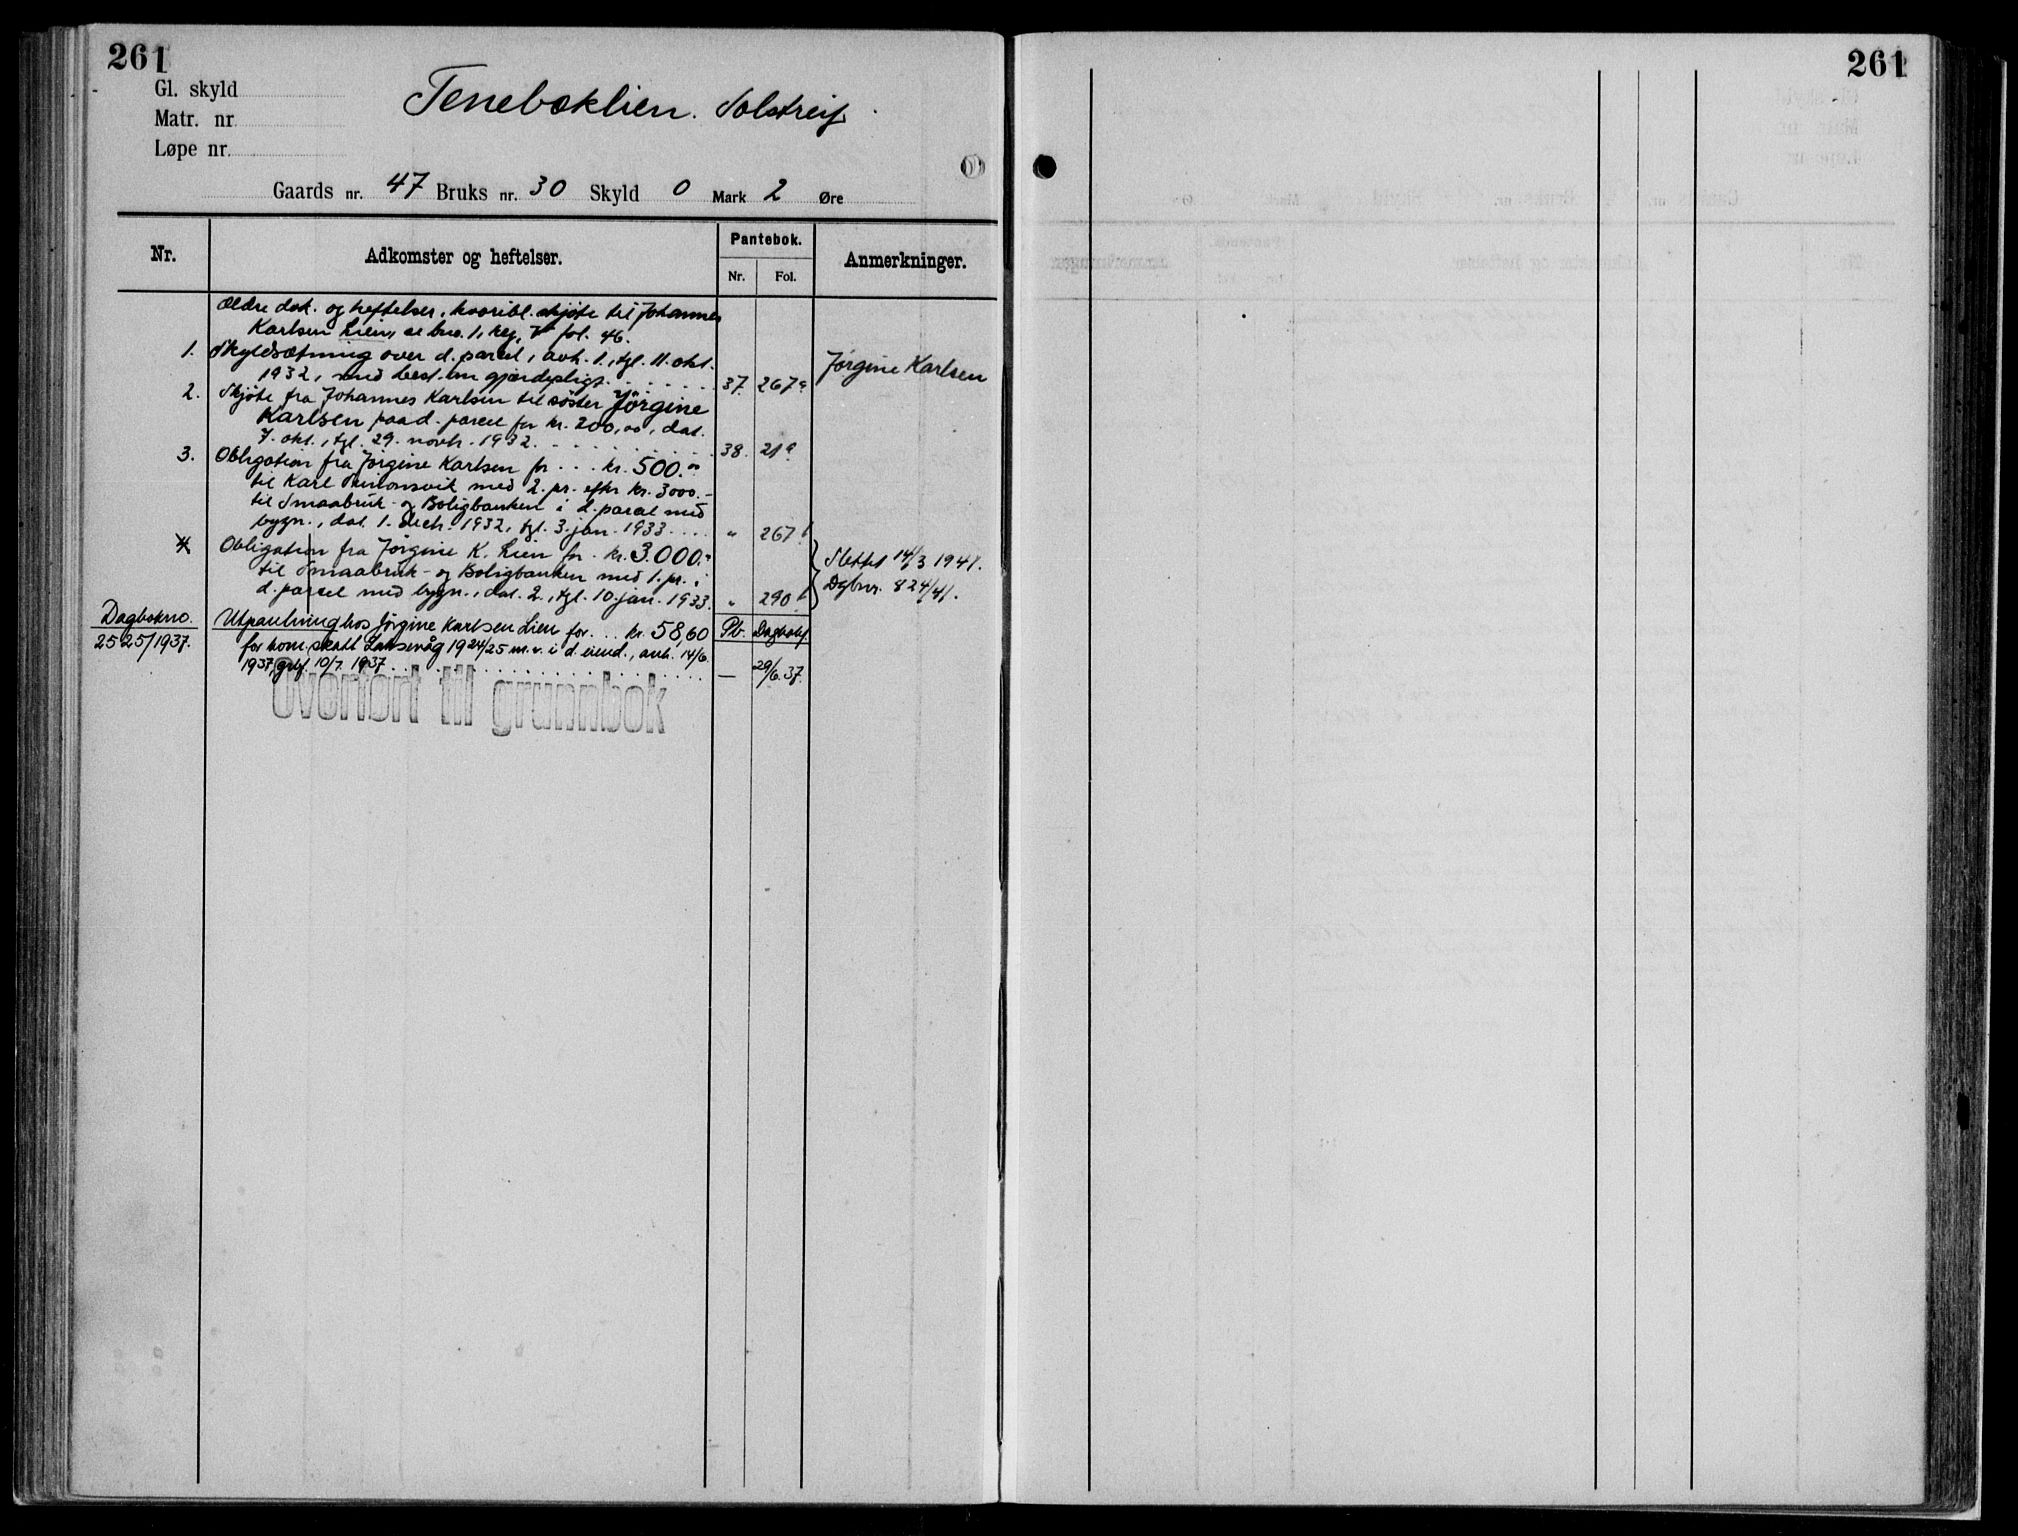 261
Gl. skyld
Matr. nr
Løpe nr.
Tenebæklien. Solstreif
Gaards nr. 47 Bruks nr. 30 Skyld 0 Mark 2 Øre
Nr.
Adkomster og heftelser.
Pantebok.
Nr. Fol.
Anmerkninger.
Ældre dok. og heftelser, hvoribl. skjøte til Johannes
Karlsen Lien, se bno. 1, reg. fol. 46.
1. Skyldsætning over d. parcel, avh. 1., tgl. 11. okt.
1932, med best. om gjærdepligt. 37. 267a
Jørgine Karlsen
2. Skjøte fra Johannes Karlsen til søster Jørgine
Karlsen paa d. parcel for kr. 200,00, dat.
7. okt., tgl. 29. novbr. 1932. 38. 21a
3. Obligation fra Jørgine Karlsen for kr. 500.00
til Karl Simonsvik med 2. pr. efter kr. 3000.-
til Smaabruk- og Boligbanken i d. parcel med
bygn., dat. 1. decbr. 1932, tgl. 3. jan. 1933. " 267b
4. Obligation fra Jørgine K. Lien for kr. 3.000.-
til Smaabruk- og Boligbanken med 1. pr. i
d. parcel med bygn., dat. 2., tgl. 10. jan. 1933. " 290b
Slettet 14/3 1941.
Dgbnr. 824/41.
Dagbokno.
2525/1937.
Utpantning hos Jørgine Karlsen Lien for kr. 58,60
for kom.skatt Laksevåg 1924/25 m.v. i d. eiend., avh. 14/6
1937, 10/7. 1937
Pb. Dagbokf.
— 29/6.37.
Overført til grunnbok
261